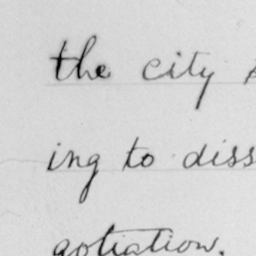 the city
ing to diss
gotiation.